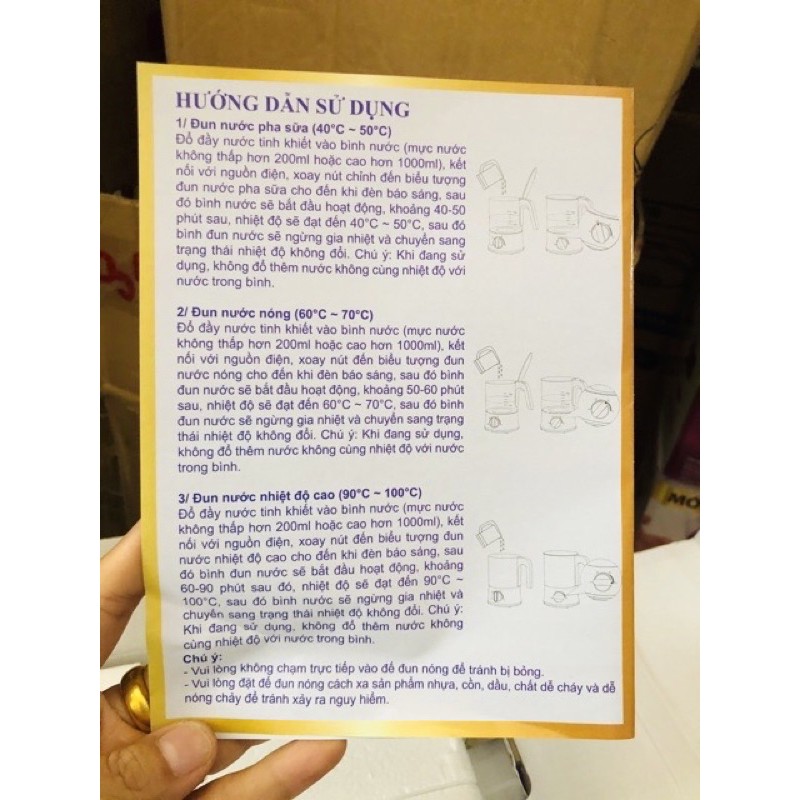 HƯỚNG DẪN SỬ DỤNG
1/ Đun nước pha sữa (40°C ~ 50°C)
Đổ đầy nước tinh khiết vào bình nước (mực nước
không thấp hơn 200ml hoặc cao hơn 1000ml), kết
nối với nguồn điện, xoay nút chỉnh đến biểu tượng
đun nước pha sữa cho đến khi đèn báo sáng, sau
đó bình nước sẽ bắt đầu hoạt động, khoảng 40-50
phút sau, nhiệt độ sẽ đạt đến 40°C ~ 50°C, sau đó
bình đun nước sẽ ngừng gia nhiệt và chuyển sang
trạng thái nhiệt độ không đổi. Chú ý: Khi đang sử
dụng, không đổ thêm nước không cùng nhiệt độ với
nước trong bình.
2/ Đun nước nóng (60°C ~ 70°C)
Đổ đầy nước tinh khiết vào bình nước (mực nước
không thấp hơn 200ml hoặc cao hơn 1000ml), kết
nối với nguồn điện, xoay nút đến biểu tượng đun
nước nóng cho đến khi đèn báo sáng, sau đó bình
đun nước sẽ bắt đầu hoạt động, khoảng 50-60 phút
sau, nhiệt độ sẽ đạt đến 60°C ~ 70°C, sau đó bình
đun nước sẽ ngừng gia nhiệt và chuyển sang trạng
thái nhiệt độ không đổi. Chú ý: Khi đang sử dụng,
không đổ thêm nước không cùng nhiệt độ với nước
trong bình.
3/ Đun nước nhiệt độ cao (90°C ~ 100°C)
Đổ đầy nước tinh khiết vào bình nước (mực nước
không thấp hơn 200ml hoặc cao hơn 1000ml), kết
nối với nguồn điện, xoay nút đến biểu tượng đun
nước nhiệt độ cao cho đến khi đèn báo sáng, sau
đó bình đun nước sẽ bắt đầu hoạt động, khoảng
60-90 phút sau đó, nhiệt độ sẽ đạt đến 90°C ~
100°C, sau đó bình nước sẽ ngừng gia nhiệt và
chuyển sang trạng thái nhiệt độ không đổi. Chú ý:
Khi đang sử dụng, không đổ thêm nước không
cùng nhiệt độ với nước trong bình.
Chú ý:
- Vui lòng không chạm trực tiếp vào đế đun nóng để tránh bị bỏng.
- Vui lòng đặt đế đun nóng cách xa sản phẩm nhựa, cồn, dầu, chất dễ cháy và dễ
nóng chảy để tránh xảy ra nguy hiểm.
MO